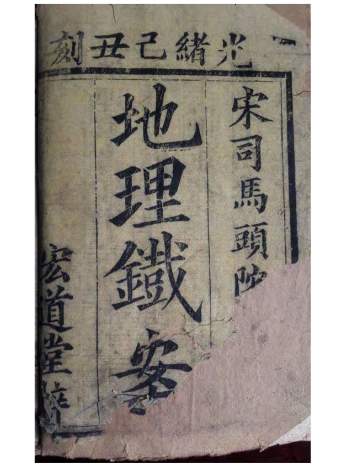 光緒己丑刻
宋司馬頭陀
地理鐵案
宏道堂